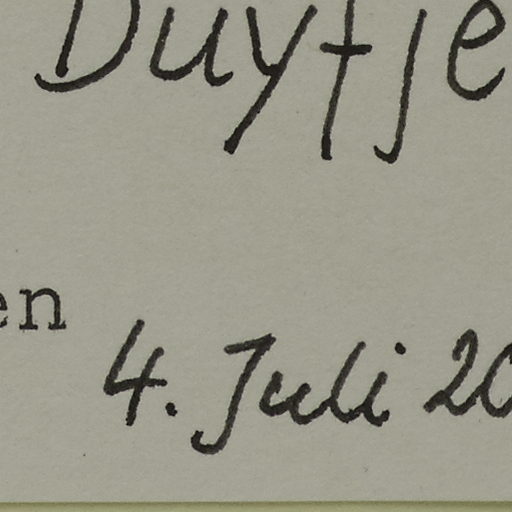 Duyfje
en
4. Juli 20